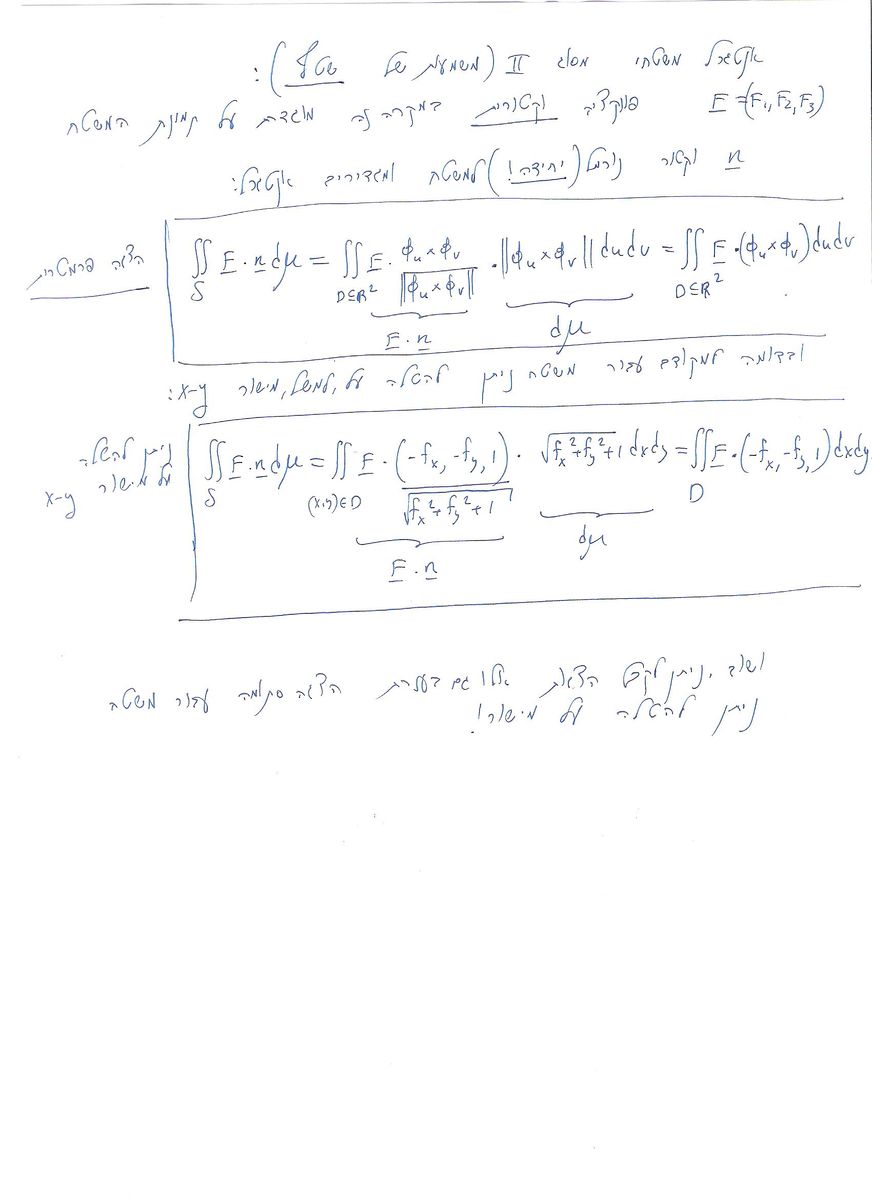 אינטגרל משטחי מסוג II (משמעות של שטף):
F=(F₁,F₂,F₃) פונקציה וקטורית במקרה זה מוגדרת על תמונת המשטח
n וקטור נורמל (יחידה!) למשטח ומגדירים אינטגרל:
הצגה פרמטרית
∬_S F·n dμ = ∬_{D⊆R²} F· (ϕ_u×ϕ_v)/‖ϕ_u×ϕ_v‖ ·‖ϕ_u×ϕ_v‖dudv = ∬_{D⊆R²} F·(ϕ_u×ϕ_v)dudv
F·n dμ
ובדומה למקודם עבור משטח ניתן להטלה על, למשל, מישור x-y:
ניתן להטלה
על מישור x-y
∬_S F·n dμ = ∬_{(x,y)∈D} F· (-f_x, -f_y, 1)/√(f_x²+f_y²+1) · √(f_x²+f_y²+1) dxdy = ∬_D F·(-f_x, -f_y, 1)dxdy
F·n dμ
ושוב, ניתן לקבל הצגות אלו גם בעזרת הצגה סתומה עבור משטח
ניתן להטלה על מישור!